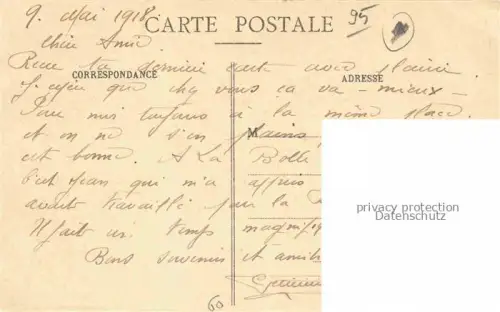 9. Mai 1918
95
CARTE POSTALE
Chère Amie
Reçu ta dernière carte avec plaisir.
CORRESPONDANCE
ADRESSE
que chez vous ça va - mieux -
Pour moi toujours à la même place.
et on ne s'en plains,
M
est bonne. A La Bolle
C'est Jean qui m'a appris
avant travaillé pour la
Il fait un temps magnif
Bons souvenirs et amit
60
privacy protection
Datenschutz